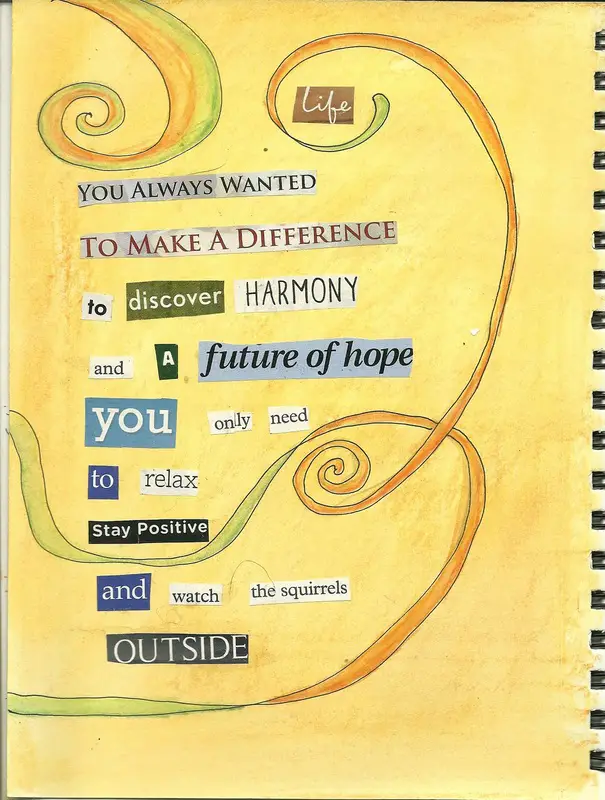 Life
YOU ALWAYS WANTED
TO MAKE A DIFFERENCE
to discover HARMONY
and A future of hope
you only need
to relax
Stay Positive
and watch the squirrels
OUTSIDE